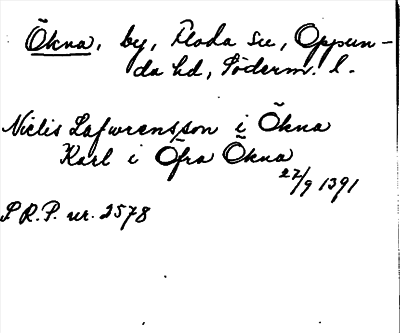 Ökna, by, Floda sn, Oppun-
da hd, Söderm. l.
Niclis Lafwrensson i Ökna
Karl i Öfra Ökna
27/9 1391
S R.P. nr. 2578